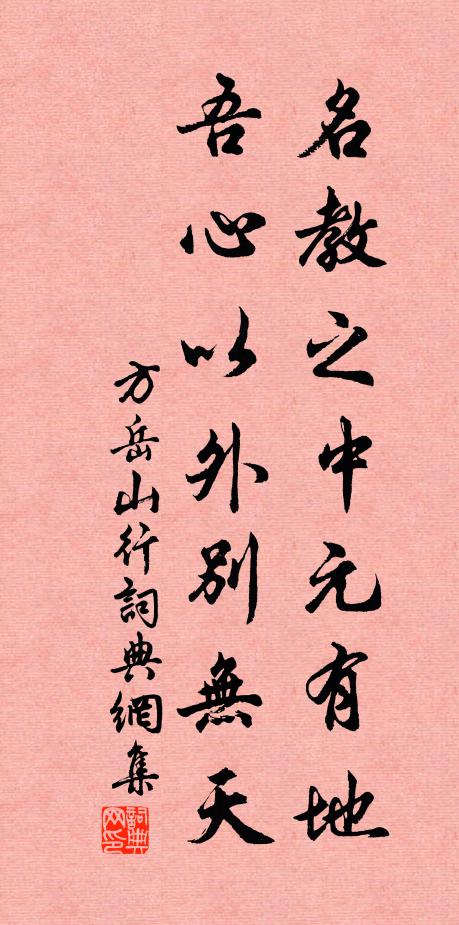 名教之中元有地
吾心以外別無天
方岳山行詞典網集
詞典网印